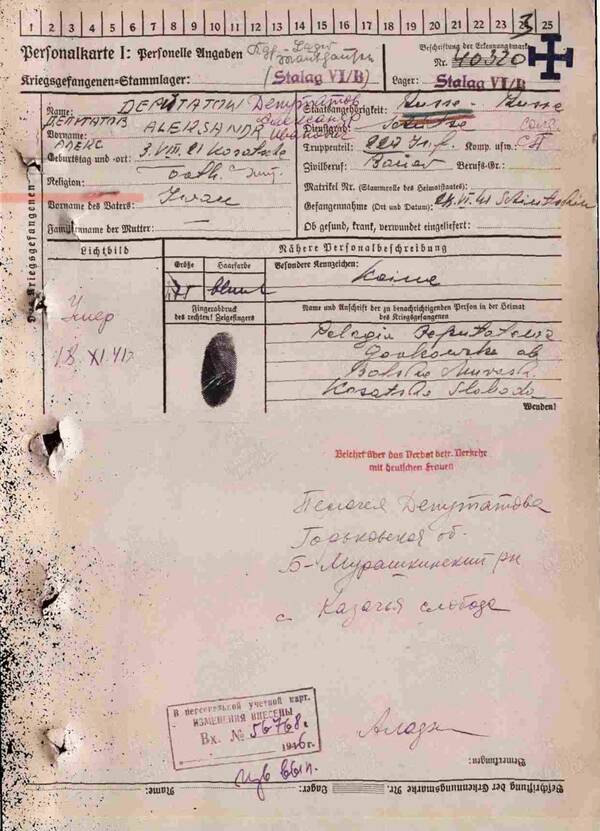 1 2 3 4 5 6 7 8 9 10 11 12 13 14 15 16 17 18 19 20 21 22 23 24 25
3
Personalkarte I: Personelle Angaben
Beschriftung der Erkennungsmarke
Kriegsgefangenen-Stammlager: Stalag VI/B
Nr. 40320
Lager: Stalag VI/B
Des Kriegsgefangenen
Name: DEPUTATOW Депутатов
ДЕПУТАТОВ
Vorname: ALEKSANDR Александр
Иванович
Geburtstag und -ort: 3. VIII. 21
Religion:
Vorname des Vaters: Iwan
Familienname der Mutter: —
Staatsangehörigkeit: Russe Russe
Dienstgrad:
Truppenteil: Komp. usw.:
Zivilberuf: Bauer Berufs-Gr.:
Matrikel Nr. (Stammrolle des Heimatstaates)
Gefangennahme (Ort und Datum)
Ob gesund, krank, verwundet eingeliefert:
Lichtbild
Nähere Personalbeschreibung
Größe Haarfarbe Besondere Kennzeichen:
Keine
Fingerabdruck
des rechten! Zeigefingers
Name und Anschrift der zu benachrichtigenden Person in der Heimat
des Kriegsgefangenen
Умер
18 XI 41
Pelagia Deputatowa
Gorkowska ob
Kasatska Sloboda
Wenden!
Belehrt über das Verbot betr. Verkehr
mit deutschen Frauen
Пелагея Депутатова
Горьковская об.
Б-Мурашкинский рн
с Казачья слобода
В персональной учетной карт.
ИЗМЕНЕНИЯ ВНЕСЕНЫ
Вх. № 56768
1946 г.
Bemerkungen:
Beschriftung der Erkennungsmarke Nr.
Lager:
Name: